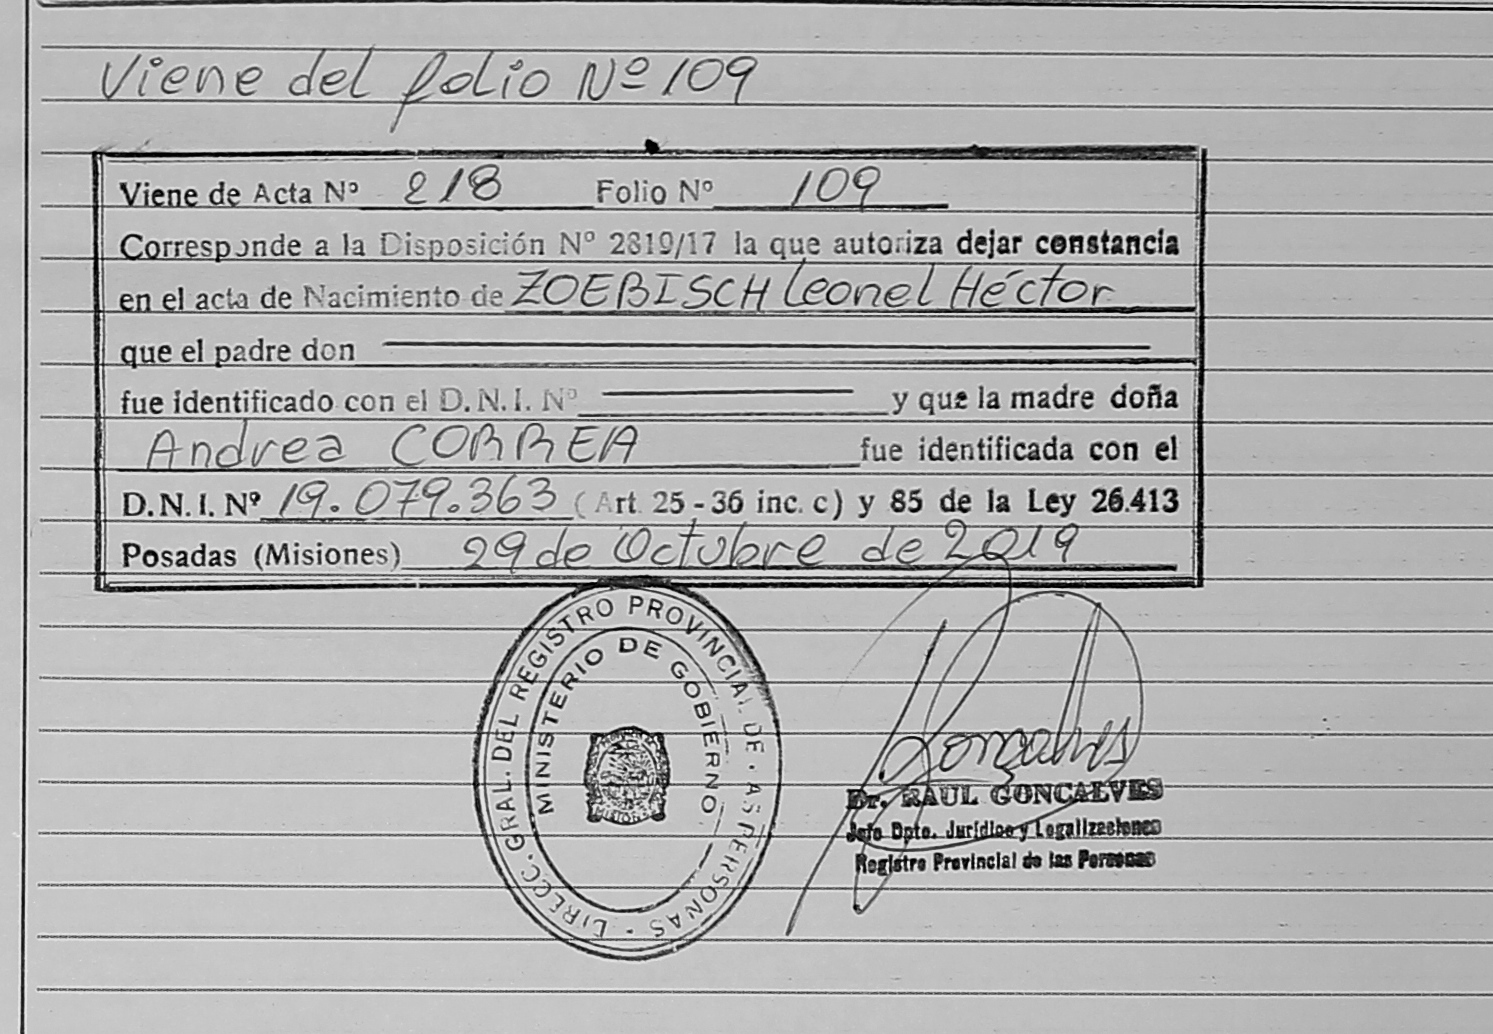 Viene del folio Nº 109
Viene de Acta Nº 218 Folio Nº 109
Corresponde a la Disposición Nº 2819/17 la que autoriza dejar constancia
en el acta de Nacimiento de ZOEBISCH Leonel Héctor
que el padre don
fue identificado con el D.N.I. Nº y que la madre doña
Andrea CORREA fue identificada con el
D.N.I. Nº 19.079.363 (Art. 25 - 36 inc. c) y 85 de la Ley 26.413
Posadas (Misiones) 29 de Octubre de 2019
DIRECC. GRAL. DEL REGISTRO PROVINCIAL DE LAS PERSONAS
MINISTERIO DE GOBIERNO
MISIONES
Goncalves
Dr. RAUL GONCALVES
Jefe Dpto. Jurídico y Legalizaciones
Registro Provincial de las Personas